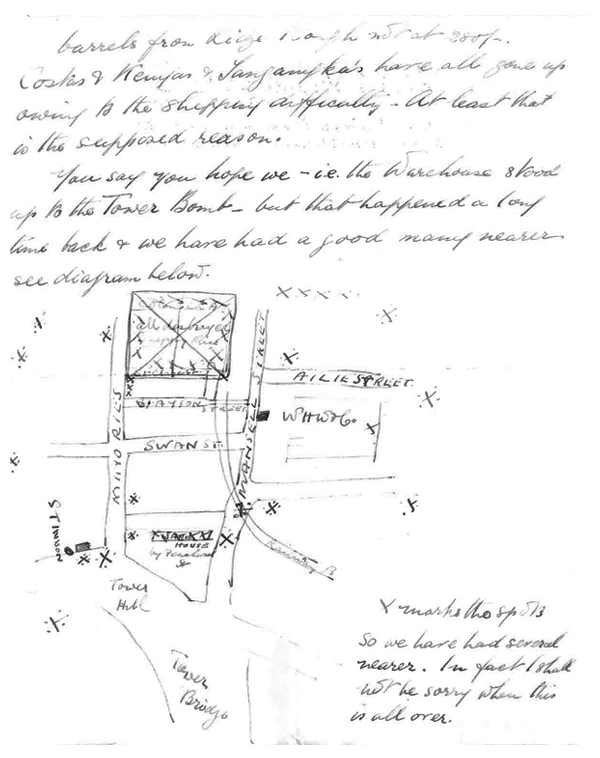 barrels from at 280/-.
Costas & Kenyas & Tanganyika's have all gone up
owing to the shipping difficulty - At least that
is the supposed reason.
You say you hope we - i.e. the Warehouse stood
up to the Tower Bomb - but that happened a long
time back & we have had a good many nearer
see diagram below.
all destroyed
AILIE STREET
MANSELL STREET
STREET
WHW & Co.
SWAN ST.
MINORIES
HOUSE
by Fenchurch
St
Tower
Hill
Tower
Bridge
X marks the spots
So we have had several
nearer. In fact I shall
not be sorry when this
is all over.